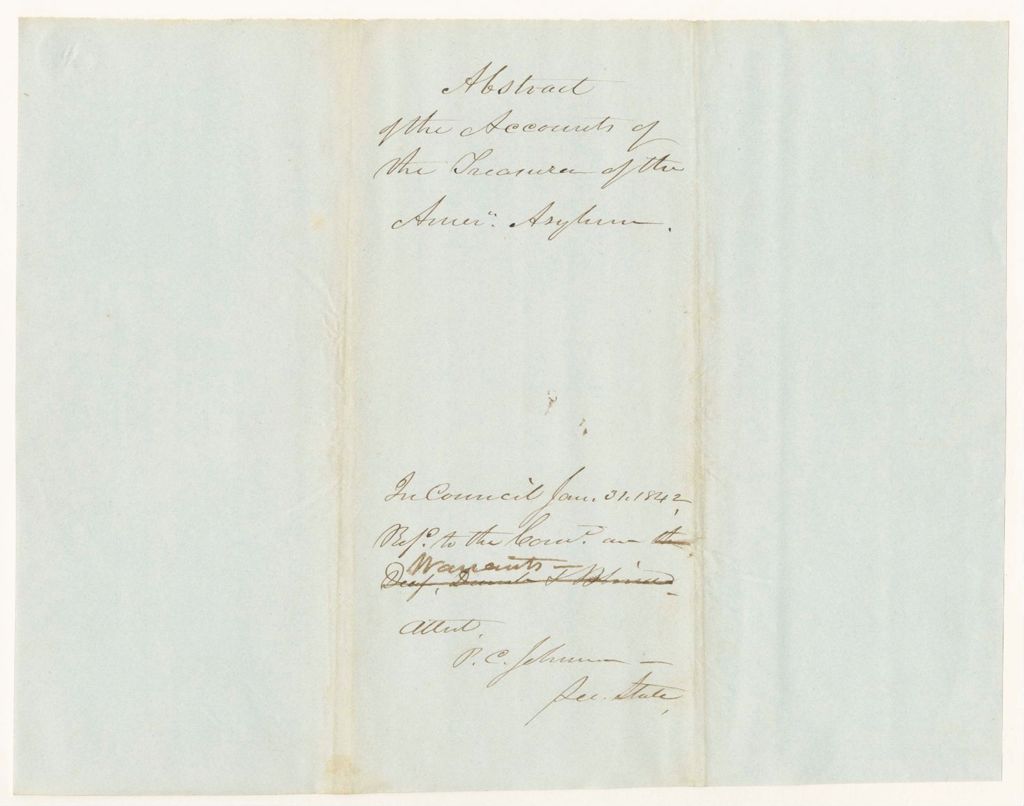 Abstract
of the Accounts of
the Treasurer of the
Amern. Asylum.
In Council Jan. 31. 1842,
Refd. to the Comee. on the
Warrants –
Deaf, Dumb & Blind –
Attest,
P. C. Johnson –
Sec. State,